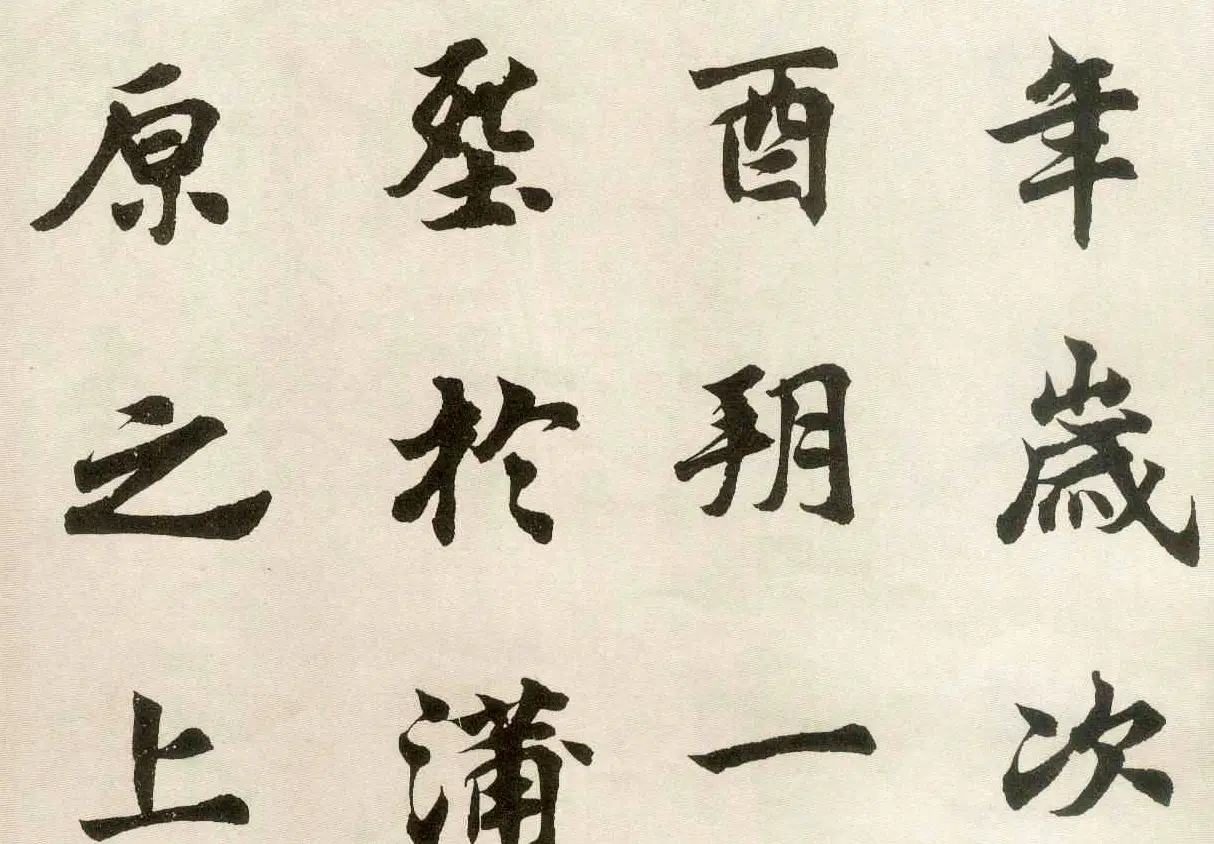 年歲次
酉朔一
塟於蒲
原之上